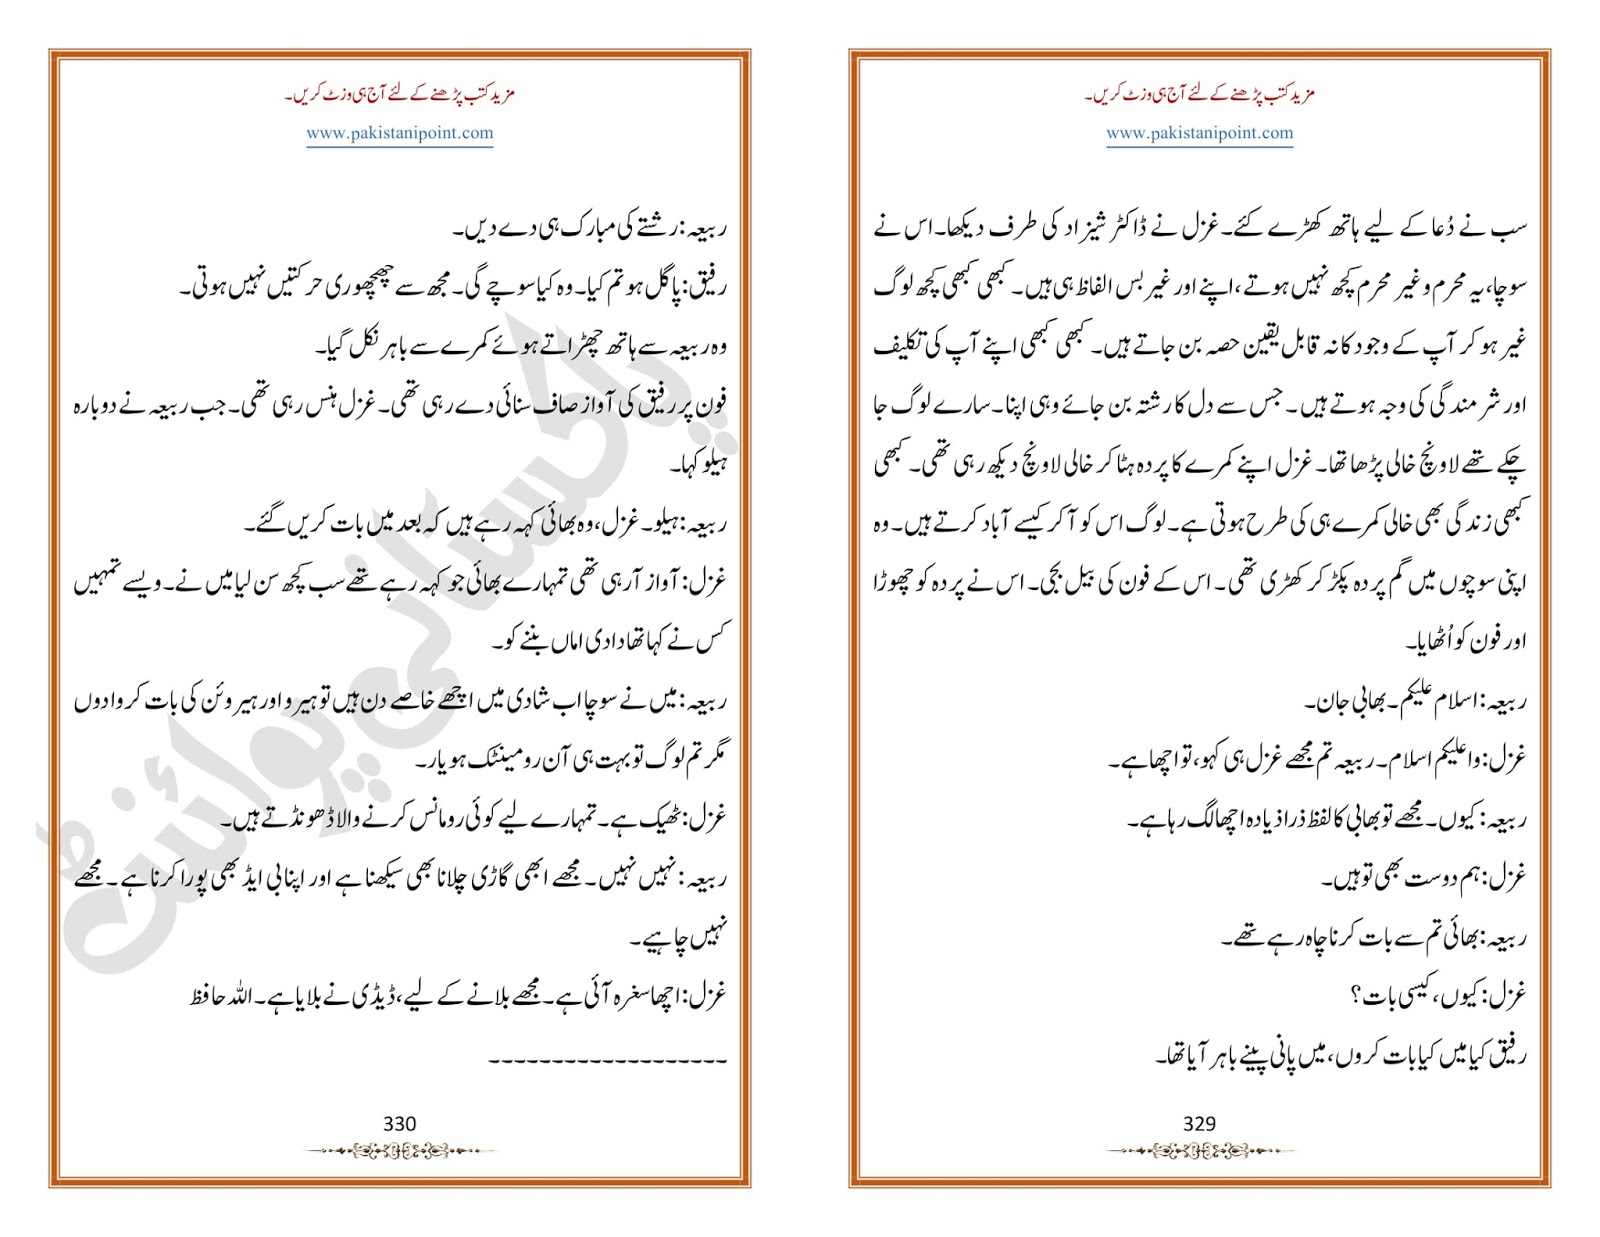 مزید کتب پڑھنے کے لئے آج ہی وزٹ کریں۔
www.pakistanipoint.com
سب نے دُعا کے لیے ہاتھ کھڑے کئے۔ غزل نے ڈاکٹر شیزاد کی طرف دیکھا۔ اس نے
سوچا، یہ محرم و غیر محرم کچھ نہیں ہوتے، اپنے اور غیر بس الفاظ ہی ہیں۔ کبھی کبھی کچھ لوگ
غیر ہو کر آپ کے وجود کا نہ قابل یقین حصہ بن جاتے ہیں۔ کبھی کبھی اپنے آپ کی تکلیف
اور شرمندگی کی وجہ ہوتے ہیں۔ جس سے دل کا رشتہ بن جائے وہی اپنا۔ سارے لوگ جا
چکے تھے لاونچ خالی پڑھا تھا۔ غزل اپنے کمرے کا پردہ ہٹا کر خالی لاونچ دیکھ رہی تھی۔ کبھی
کبھی زندگی بھی خالی کمرے ہی کی طرح ہوتی ہے۔ لوگ اس کو آکر کیسے آباد کرتے ہیں۔ وہ
اپنی سوچوں میں گم پردہ پکڑ کر کھڑی تھی۔ اس کے فون کی بیل بجی۔ اس نے پردہ کو چھوڑا
اور فون کو اُٹھایا۔
ربیعہ: اسلام علیکم۔ بھابی جان۔
غزل: واعلیکم اسلام۔ ربیعہ تم مجھے غزل ہی کہو، تو اچھا ہے۔
ربیعہ: کیوں۔ مجھے تو بھابی کا لفظ ذرا زیادہ اچھا لگ رہا ہے۔
غزل: ہم دوست بھی تو ہیں۔
ربیعہ: بھائی تم سے بات کرنا چاہ رہے تھے۔
غزل: کیوں، کیسی بات؟
رفیق کیا میں کیا بات کروں، میں پانی پینے باہر آیا تھا۔
329
مزید کتب پڑھنے کے لئے آج ہی وزٹ کریں۔
www.pakistanipoint.com
ربیعہ: رشتے کی مبارک ہی دے دیں۔
رفیق: پاگل ہو تم کیا۔ وہ کیا سوچے گی۔ مجھ سے چھچھوری حرکتیں نہیں ہوتی۔
وہ ربیعہ سے ہاتھ چھڑاتے ہوئے کمرے سے باہر نکل گیا۔
فون پر رفیق کی آواز صاف سنائی دے رہی تھی۔ غزل ہنس رہی تھی۔ جب ربیعہ نے دوبارہ
ہیلو کہا۔
ربیعہ: ہیلو۔ غزل، وہ بھائی کہہ رہے ہیں کہ بعد میں بات کریں گئے۔
غزل: آواز آرہی تھی تمہارے بھائی جو کہہ رہے تھے سب کچھ سن لیا میں نے۔ ویسے تمہیں
کس نے کہا تھا دادی اماں بننے کو۔
ربیعہ: میں نے سوچا اب شادی میں اچھے خاصے دن ہیں تو ہیرو اور ہیروئن کی بات کروا دوں
مگر تم لوگ تو بہت ہی آن رومینٹک ہو یار۔
غزل: ٹھیک ہے۔ تمہارے لیے کوئی رومانس کرنے والا ڈھونڈتے ہیں۔
ربیعہ: نہیں نہیں۔ مجھے ابھی گاڑی چلانا بھی سیکھنا ہے اور اپنا بی ایڈ بھی پورا کرنا ہے۔ مجھے
نہیں چاہیے۔
غزل: اچھا سغرہ آئی ہے۔ مجھے بلانے کے لیے، ڈیڈی نے بلایا ہے۔ اللہ حافظ
-------------------
330
پاکستانی پوائنٹ